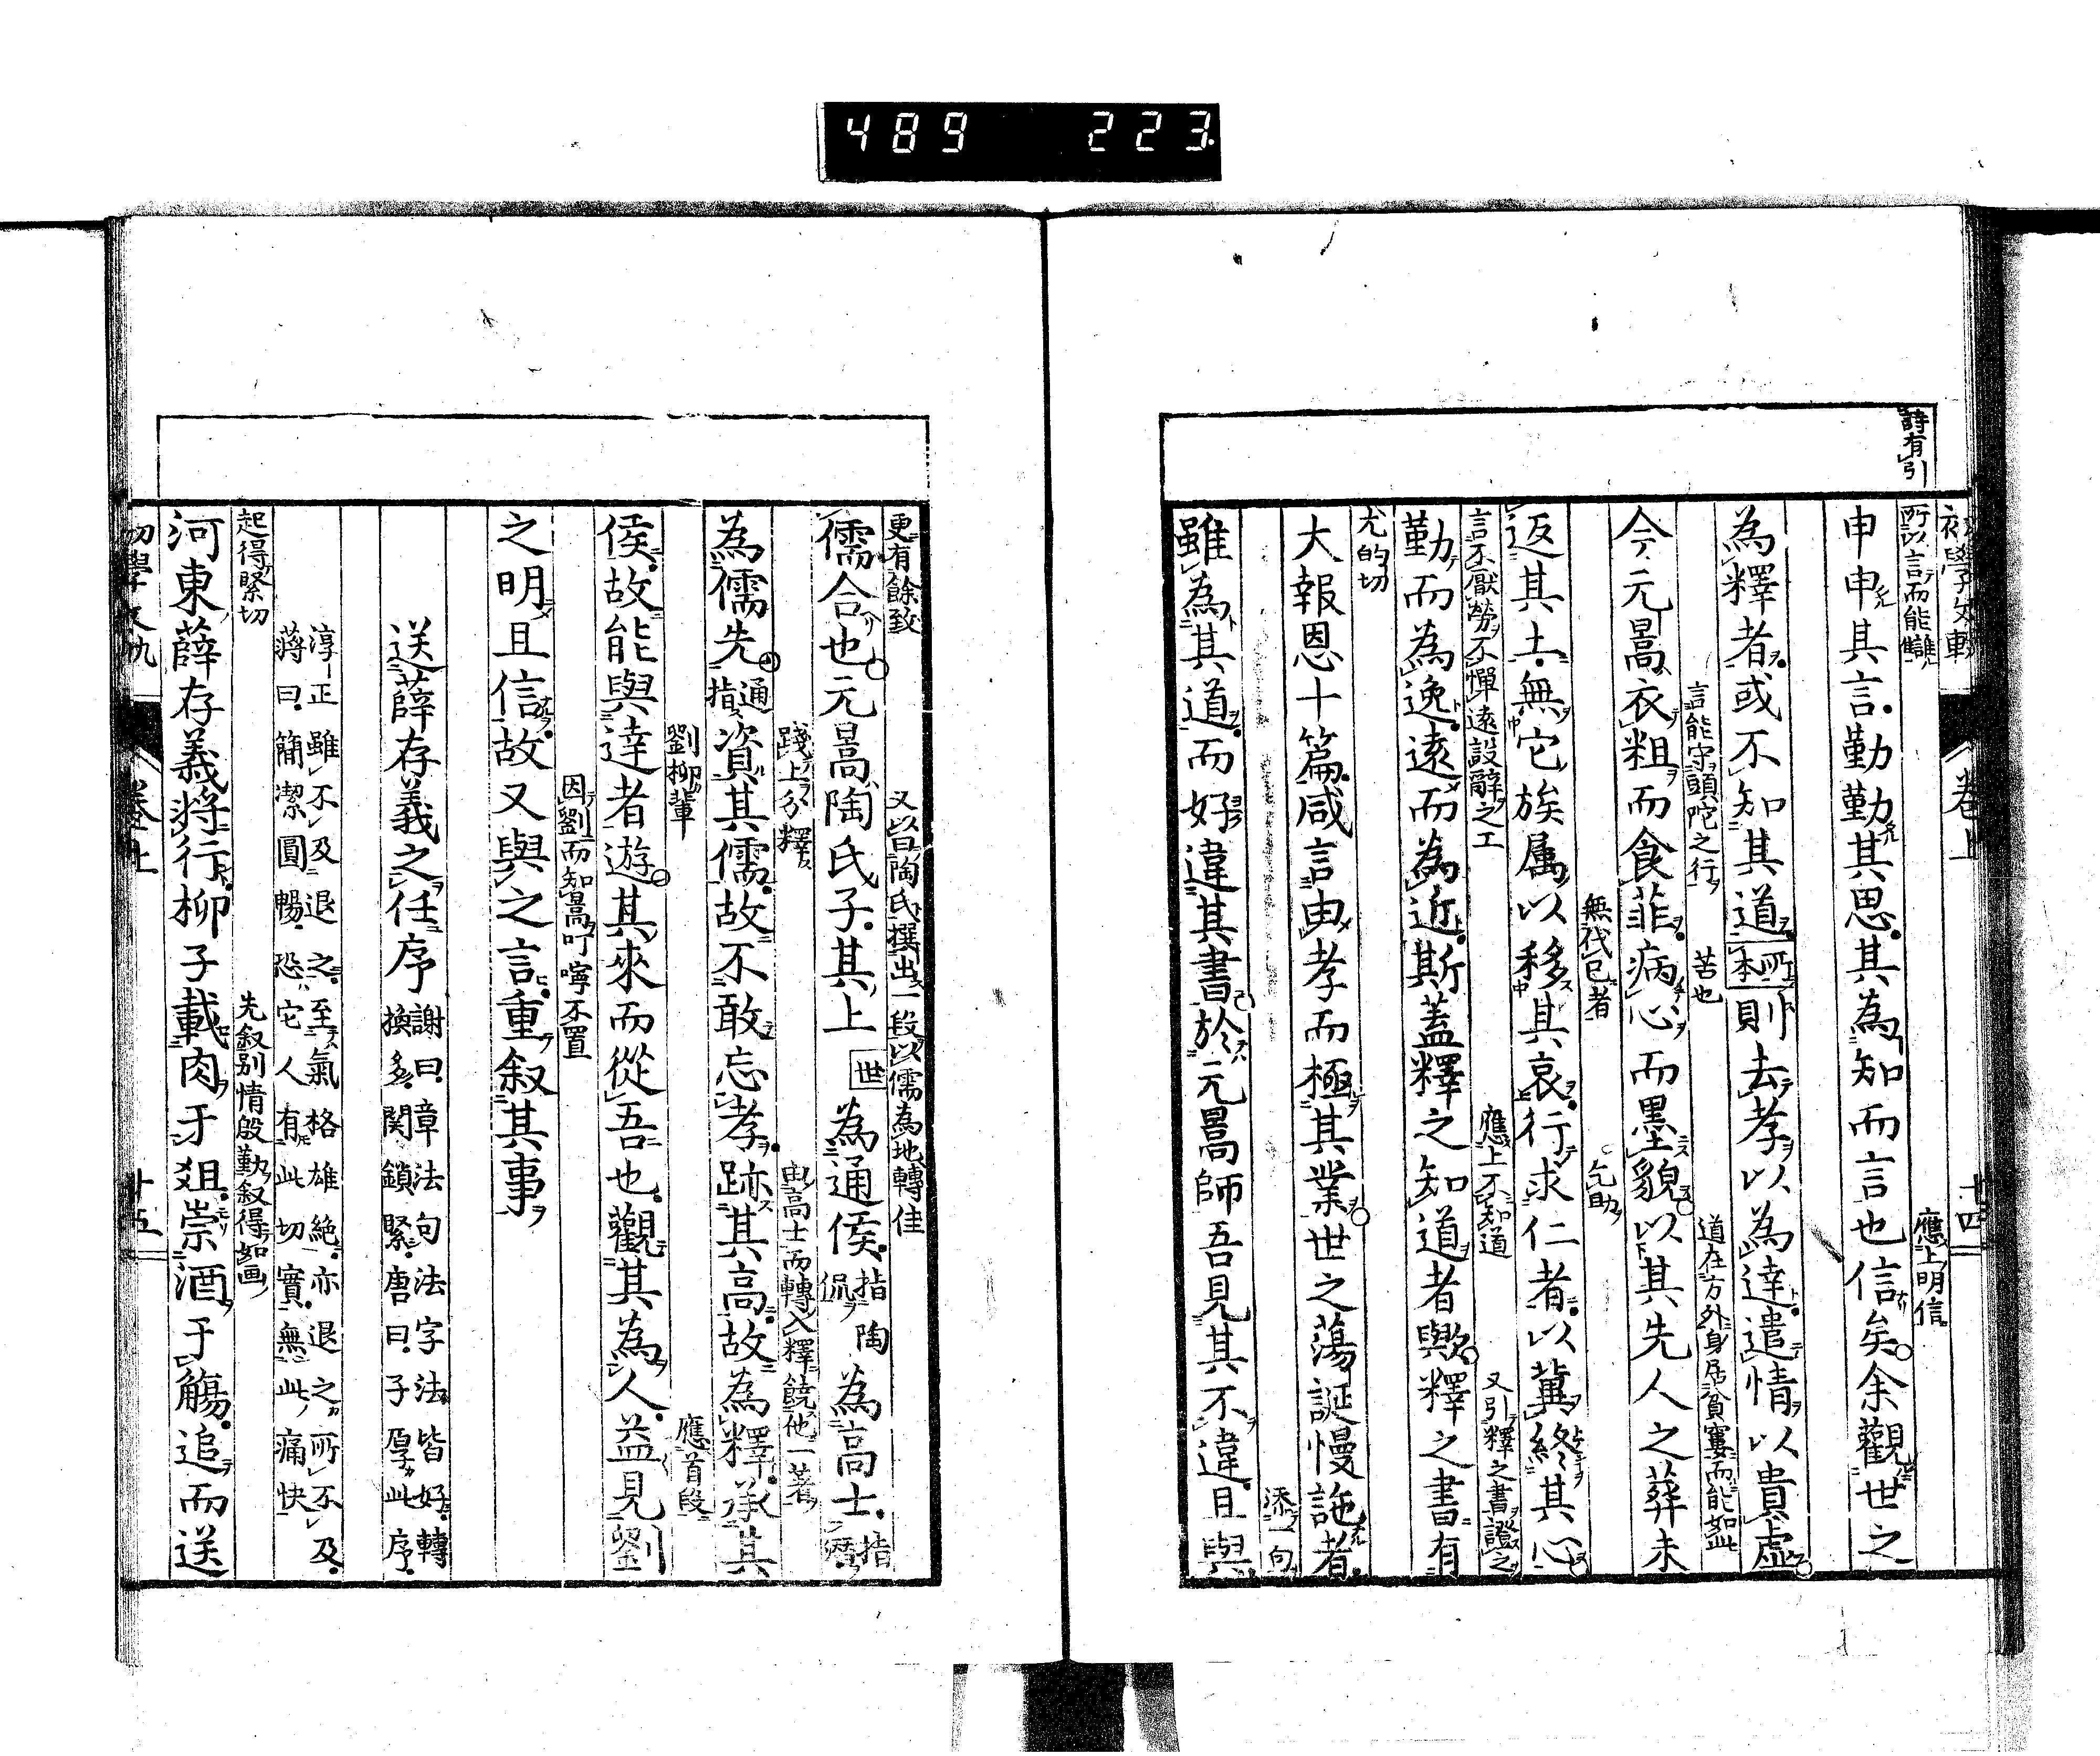 489 223
詩有引
初學文軌 卷上 十四
所以言而能讎 應上明信
申申其言勤勤其思其為知而言也信矣余觀世之
為釋者或不知其道所本則去孝以為達遣情以貴虛
言能守頭陀之行 苦也 道在方外身居貧窶而能如此
今元暠衣粗而食菲病心而墨貌以其先人之葬未
無代己者 乞助
返其土無它族属以移其哀行求仁者以冀終其心
言不厭勞不憚遠設辭之工 應上不知道 又引釋之書證之
勤而為逸遠而為近斯蓋釋之知道者歟釋之書有
尤的切
大報恩十篇咸言由孝而極其業世之蕩誕慢訑者
添一句
雖為其道而好違其書於元暠師吾見其不違且與
更有餘致 又以陶氏撰出一段以儒為地轉佳
儒合也元暠陶氏子其上世為通侯指陶侃為高士指潛
踐上分釋 由高士而轉入釋饒他一著
為儒先指通資其儒故不敢忘孝跡其高故為釋承其
劉柳輩 應首段
侯故能與達者遊其來而從吾也觀其為人益見劉
因劉而知暠叮嚀不置
之明且信故又與之言重叙其事
送薛存義之任序 謝曰章法句法字法皆好轉換多関鎖緊唐曰子厚此序
淳正雖不及退之至氣格雄絕亦退之所不及
蔣曰簡潔圓暢恐它人有此切實無此痛快
起得緊切 先叙別情殷勤叙得如画
河東薛存義將行柳子載肉于俎崇酒于觴追而送
初學文軌 卷上 十五